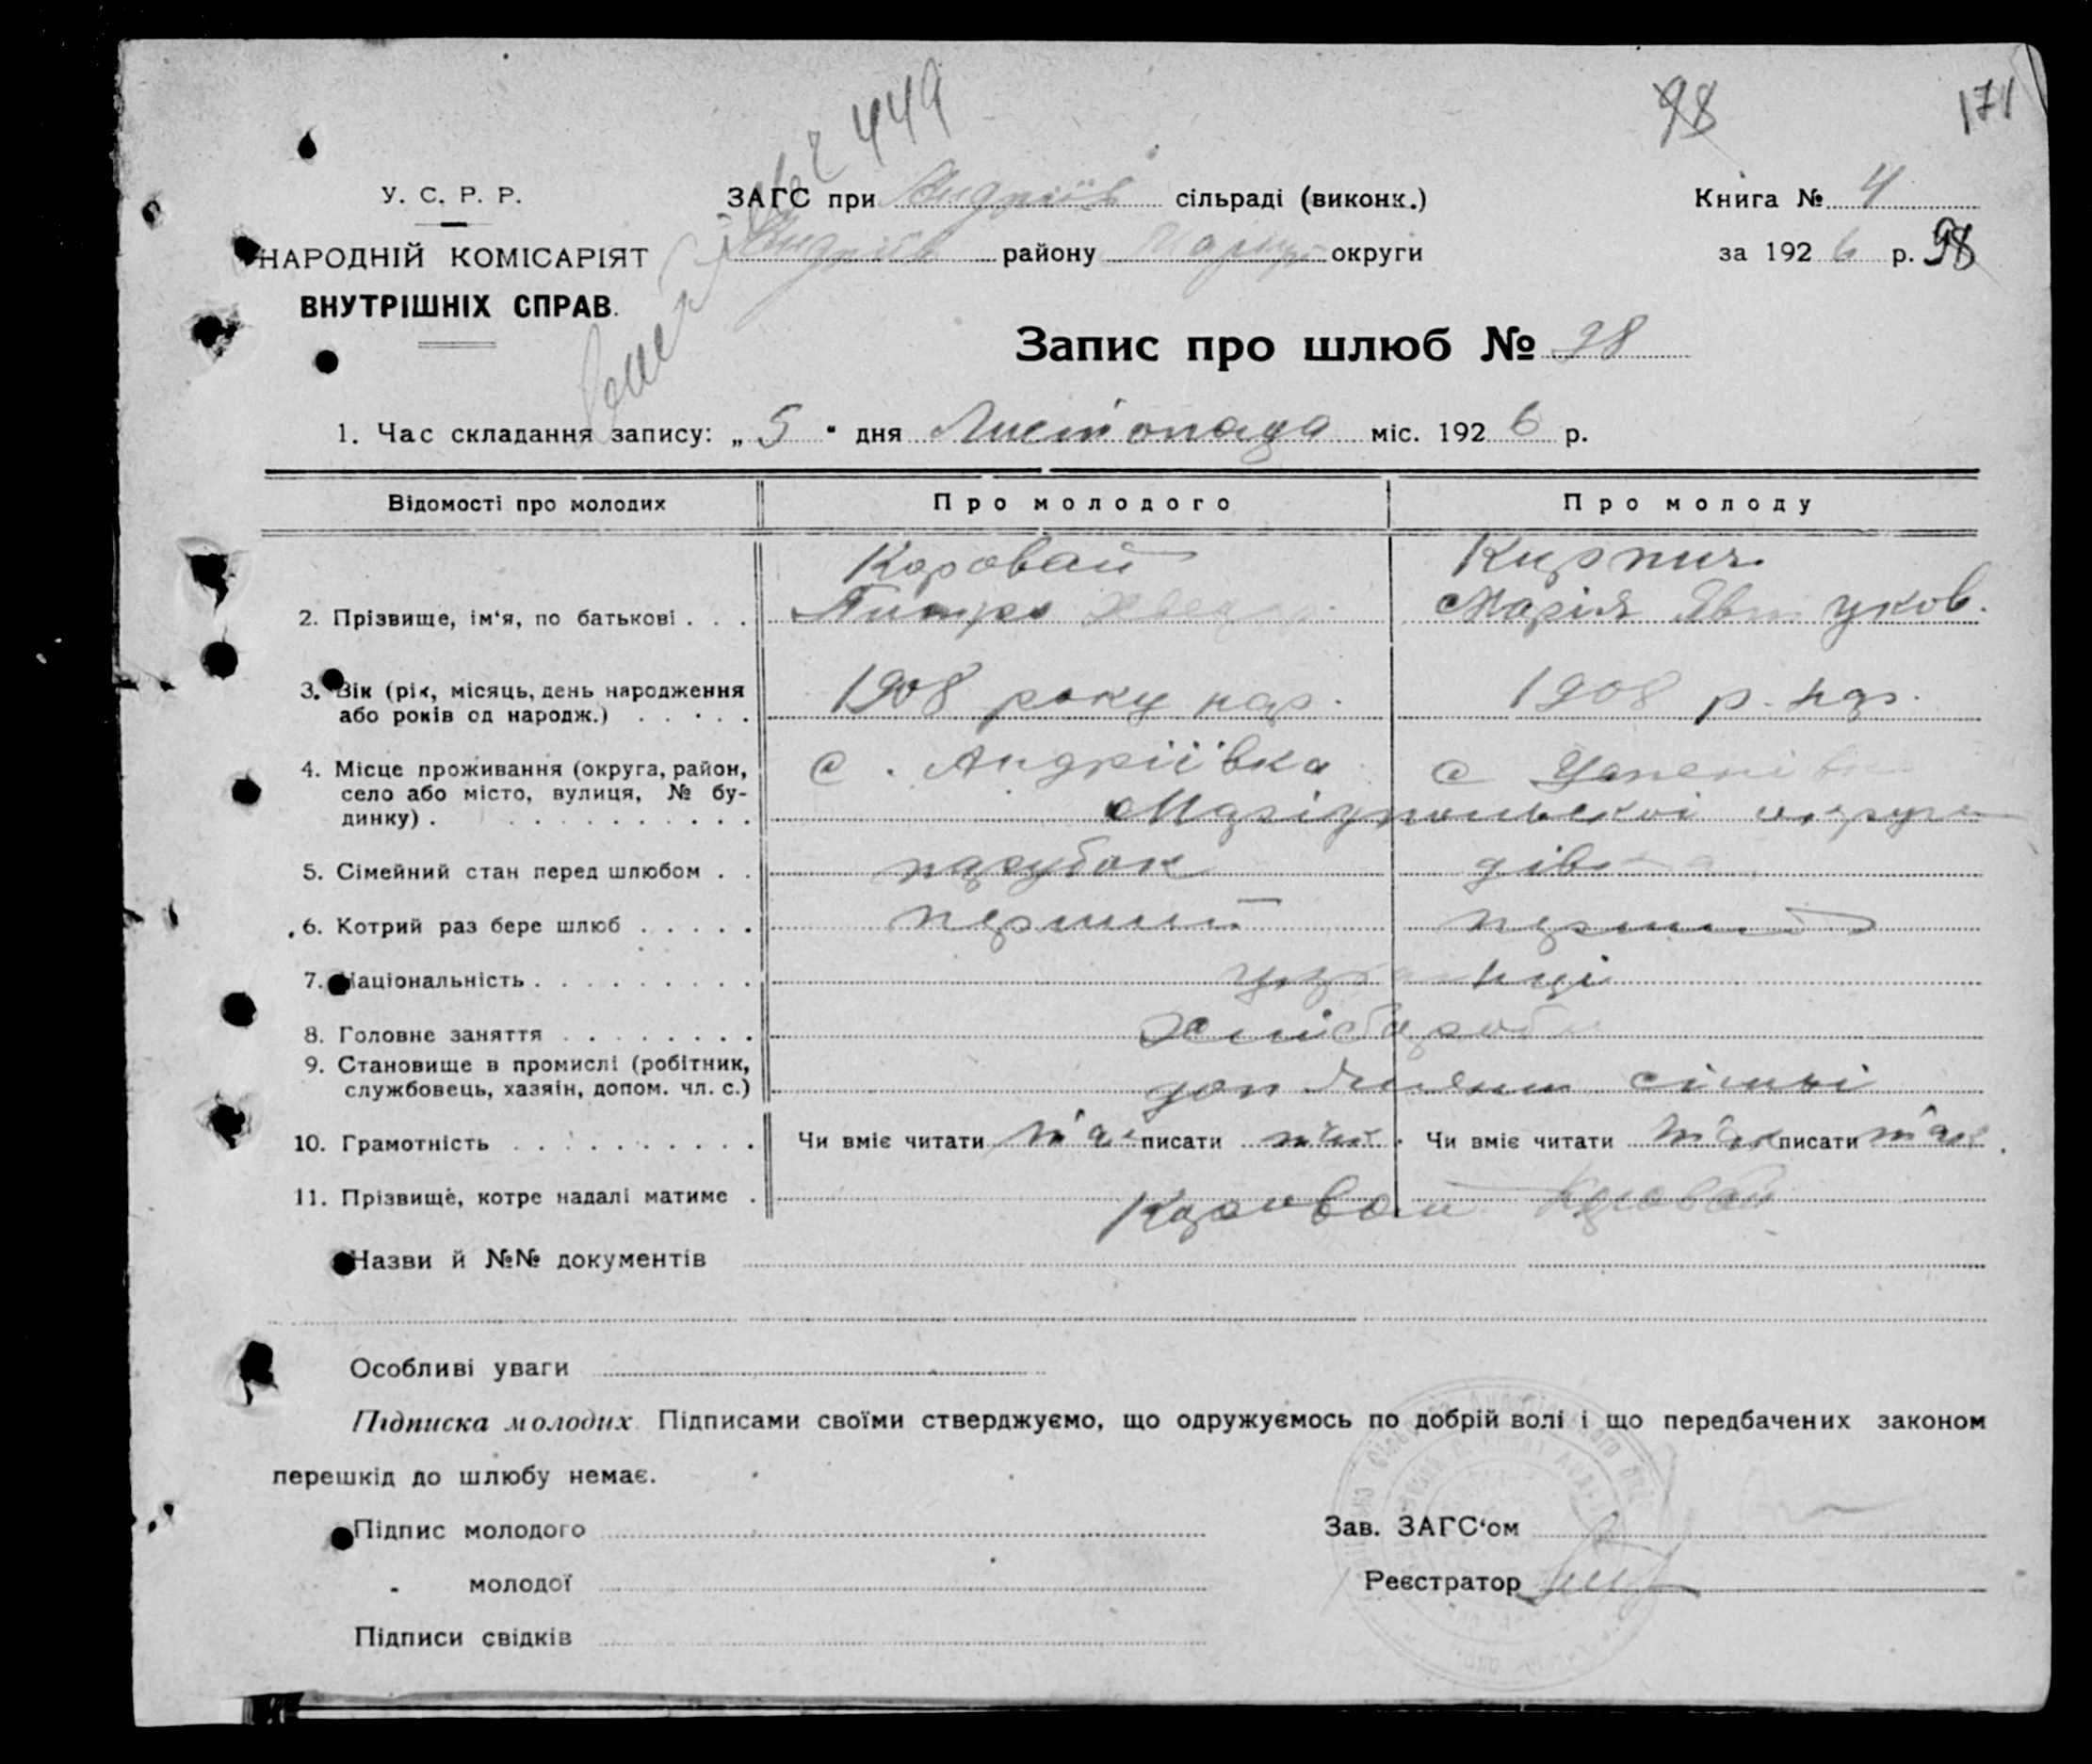 449
98
171
У. С. Р. Р.
ЗАГС при Андріїв сільраді (виконк.)
Книга № 4
НАРОДНІЙ КОМІСАРІЯТ
Андріїв району Маріуп округи
за 1926 р. 98
ВНУТРІШНІХ СПРАВ.
Запис про шлюб № 98
1. Час складання запису: „5" дня Листопада міс. 1926 р.
Відомості про молодих
Про молодого
Про молоду
Коровай
Кирпич
2. Прізвище, ім'я, по батькові . . .
Марія уков.
3. Вік (рік, місяць, день народження
або років од народж.) . . . . .
1908 року нар.
1908 р. нар.
4. Місце проживання (округа, район,
село або місто, вулиця, № бу-
динку) . . . . . . . . . . .
с. Андріївка
с
Маріупольської округи
5. Сімейний стан перед шлюбом . .
парубок
дівка
6. Котрий раз бере шлюб . . . . .
перший
перший
7. Національність . . . . . . . . .
українці
8. Головне заняття . . . . . . . .
Хлібороби
9. Становище в промислі (робітник,
службовець, хазяїн, допом. чл. с.)
доп члени сімьі
10. Грамотність . . . . . . . . . .
Чи вміє читати так писати так
Чи вміє читати так писати так
11. Прізвище, котре надалі матиме .
Коровай Коровай
Назви й №№ документів
Особливі уваги
Підписка молодих. Підписами своїми стверджуємо, що одружуємось по добрій волі і що передбачених законом
перешкід до шлюбу немає.
Підпис молодого
Зав. ЗАГС'ом
„ молодої
Реєстратор
Підписи свідків